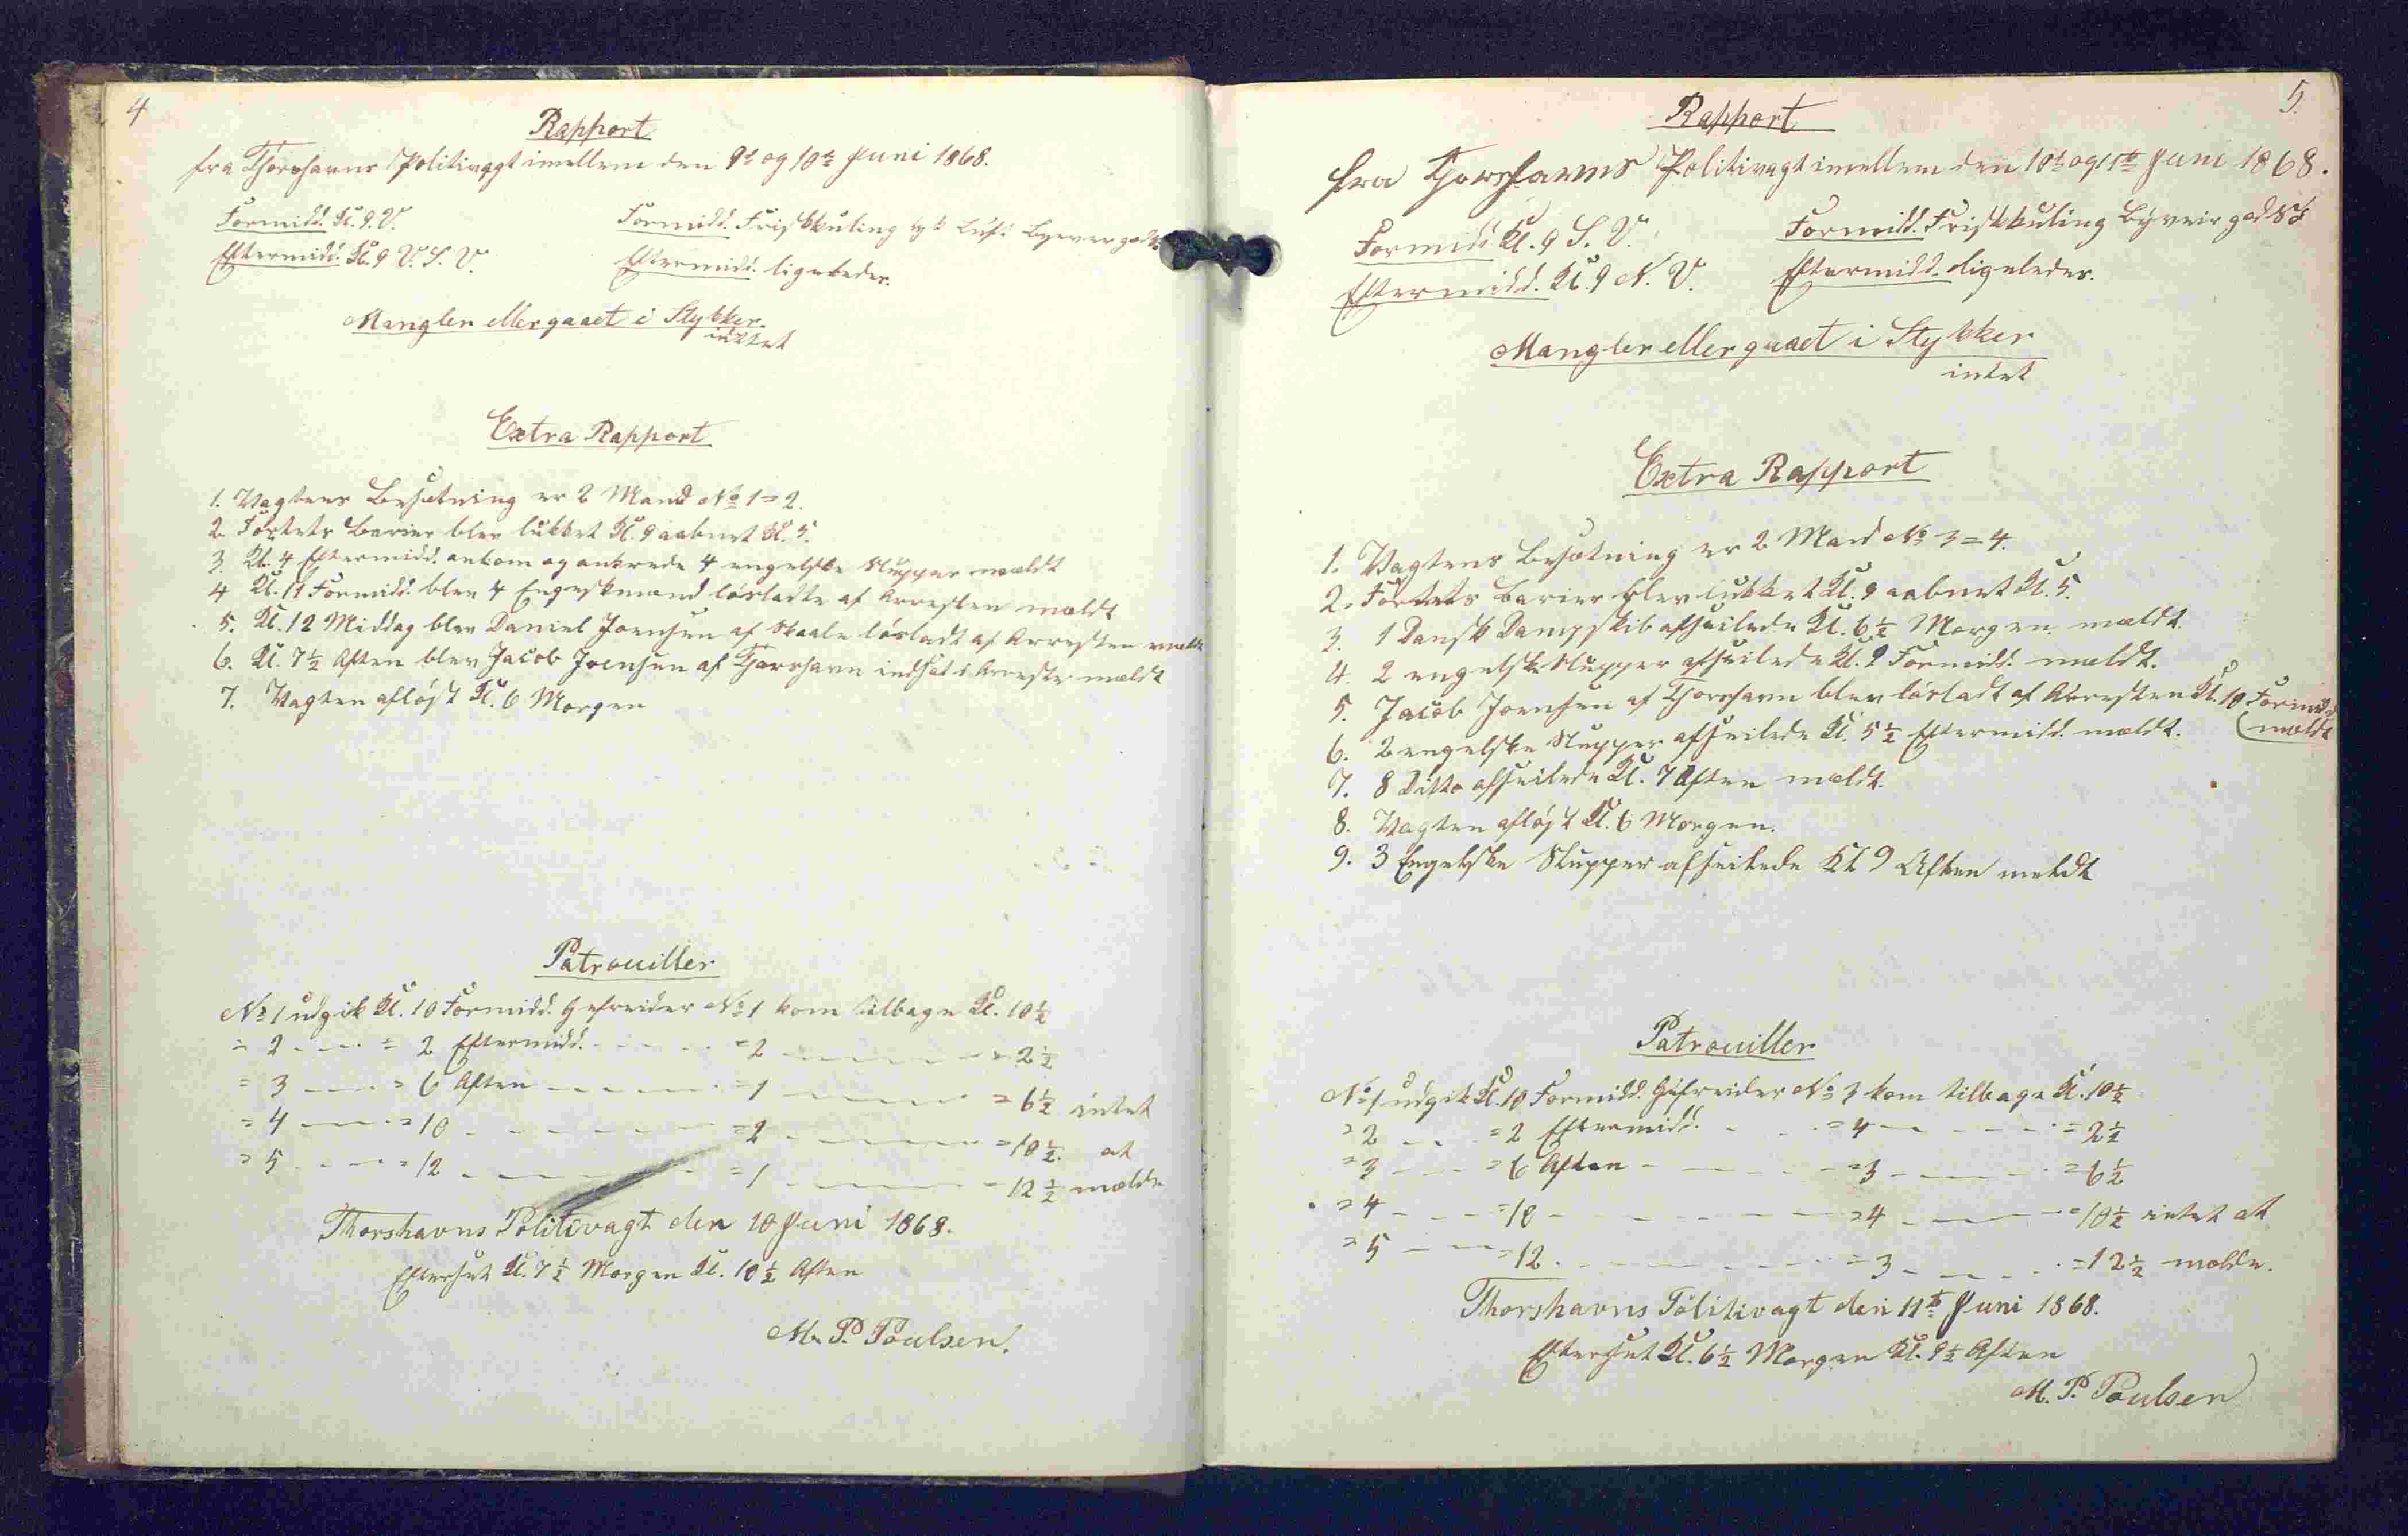 4
Rapport
fra Thorshavns Politivagt imellem den 9de og 10de Juni 1868.
Formidd. Kl. 9. V.
Formidd. Friskkuling tyk Luft Byeveir godt.
Eftermidd. Kl. 9 V. S. V.
Eftermidd. ligeledes.
Mangler eller gaaet i Stykker.
intet
Extra Rapport
1. Vagtens Besætning er 2 Mand No 1 = 2.
2. Fortets Barier blev lukket Kl. 9 aabnet Kl. 5.
3. Kl. 4 Eftermidd. ankom og ankrede 4 engelske Slupper mældt
4 Kl. 11 Formidd. blev 4 Engeskmænd lösladte af Arresten mældt
5. Kl. 12 Middag blev Daniel Joensen af Skaale lösladt af Arresten mældt
6. Kl. 7½ Aften blev Jacob Joensen af Thorshavn indsat i Arresten mældt
7. Vagten aflöst Kl. 6 Morgen
Patrouiller
No 1 udgik Kl. 10 Formidd. Gefreider No 1 kom tilbage Kl. 10½
= 2 - - - = 2 Eftermidd. - - - = 2 - - - = 2½
= 3 - - - = 6 Aften - - - = 1 - - - = 6½ intet
= 4 - - - = 10 - - - = 2 - - - = 10½ at
= 5 - - - = 12 - - - = 1 - - - = 12½ mælde
Thorshavns Politivagt den 10 Juni 1868.
Efterset Kl. 7½ Morgen Kl. 10½ Aften
M. P. Poulsen.
5.
Rapport
fra Thorshavns Politivagt imellem den 10de og 11te Juni 1868.
Formidd. Kl. 9 S. V.
Formidd. Friskkuling Byveir godt
Eftermidd. Kl. 9 N. V.
Eftermidd. ligeledes.
Mangler eller gaaet i Stykker
intet
Extra Rapport
1. Vagtens Besætning er 2 Mand No 3 = 4.
2. Fortets Barier blev lukket Kl. 9 aabnet Kl. 5.
3. 1 Dansk Dampskib afseilede Kl. 6½ Morgen mældt.
4. 2 engelske Slupper afseilede Kl. 9 Formidd. mældt.
5. Jacob Joensen af Thorshavn blev lösladt af Arresten Kl. 10 Formidd.
(mældt
6. 2 engelske Slupper afseilede Kl. 5½ Eftermidd. mældt.
7. 8 Ditto afseilede Kl. 7 Aften mældt.
8. Vagten aflöst Kl. 6 Morgen.
9. 3 Engelske Slupper afseilede Kl 9 Aften meldt
Patrouiller
No 1 udgik Kl. 10 Formidd. Gefreider No 3 kom tilbage Kl. 10½
= 2 - - - = 2 Eftermidd. - - = 4 - - - = 2½
= 3 - - - = 6 Aften - - - = 3 - - - = 6½
= 4 - - - = 10 - - - = 4 - - - = 10½ intet at
= 5 - - - = 12 - - - = 3 - - - = 12½ mælde.
Thorshavns Politivagt den 11te Juni 1868.
Efterset Kl. 6½ Morgen Kl. 9½ Aften
M. P. Poulsen